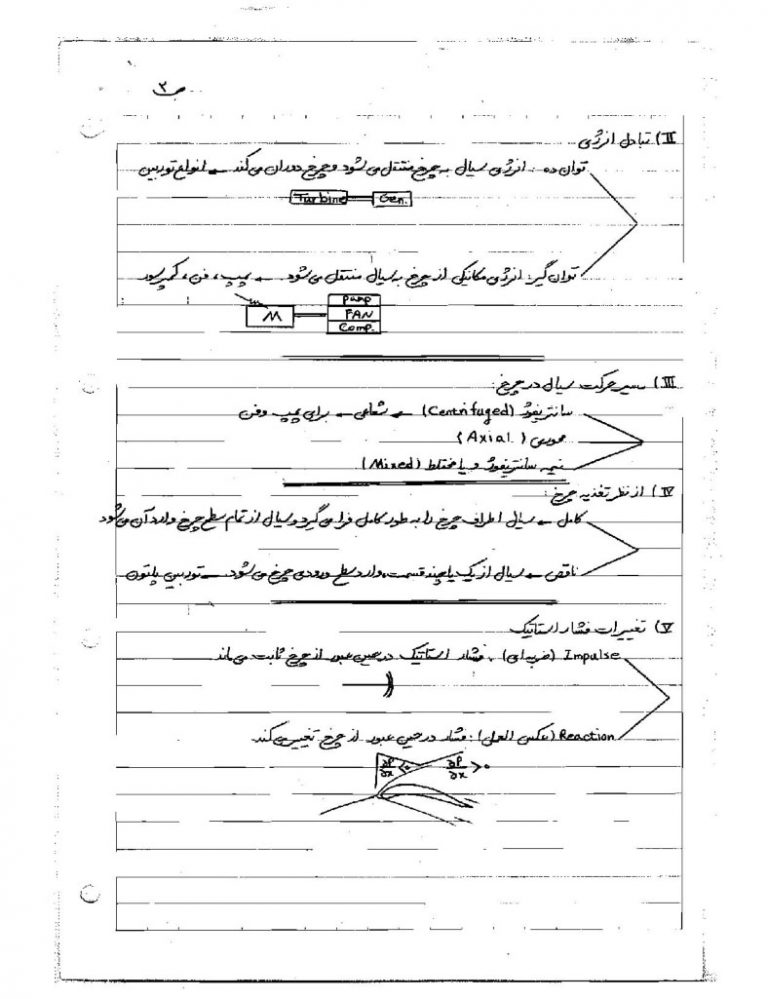 ص ۳
II) تبادل انرژی
توان ده: انرژی سیال به چرخ منتقل می شود و چرخ دوران می کند ← انواع توربین
Turbine Gen.
توان گیر: انرژی مکانیکی از چرخ به سیال منتقل می شود ← پمپ، فن، کمپرسور
M
Pump
FAN
Comp.
III) مسیر حرکت سیال در چرخ:
سانتریفوژ (Centrifuged) ← شعاعی ← برای پمپ و فن
محوری (Axial)
نیمه سانتریفوژ و یا مختلط (Mixed)
IV) از نظر تغذیه چرخ:
کامل ← سیال اطراف چرخ را به طور کامل فرا می گیرد و سیال از تمام سطح چرخ وارد آن می شود
ناقص ← سیال از یک یا چند قسمت وارد سطح ورودی چرخ می شود ← توربین پلتون
V) تغییرات فشار استاتیک
Impulse (ضربه ای): فشار استاتیک در حین عبور از چرخ ثابت می ماند
Reaction (عکس العمل): فشار در حین عبور از چرخ تغییر می کند
∂P/∂x < 0 ∂P/∂x > 0